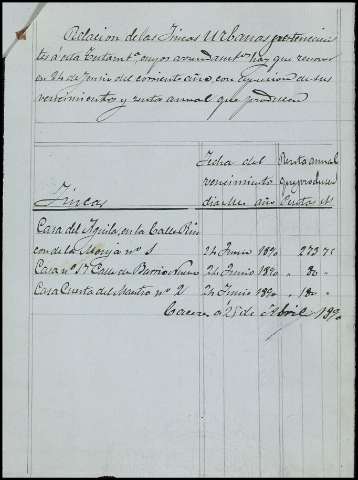 Relacion de las Fincas Urbanas pertenecien
tes á esta Testamt.ª, cuyos arrendamt.os hay que renovar
en 24 de Junio del corriente año, con espresion de sus
vencimientos y renta anual que producen
Fincas
Fecha del vencimiento
dia Mes año
Renta anual que producen
Pesetas Cs
Casa del Aguila, en la Calle Rin
con de la Monja nº 1 24 Junio 1890 273 75
Casa nº 17 Calle de Barrio Nuevo 24 Junio 1890 " 80 "
Casa Cuesta del Maestro nº 2 24 Junio 1890 " 180 "
Caceres á 25 de Abril 1890